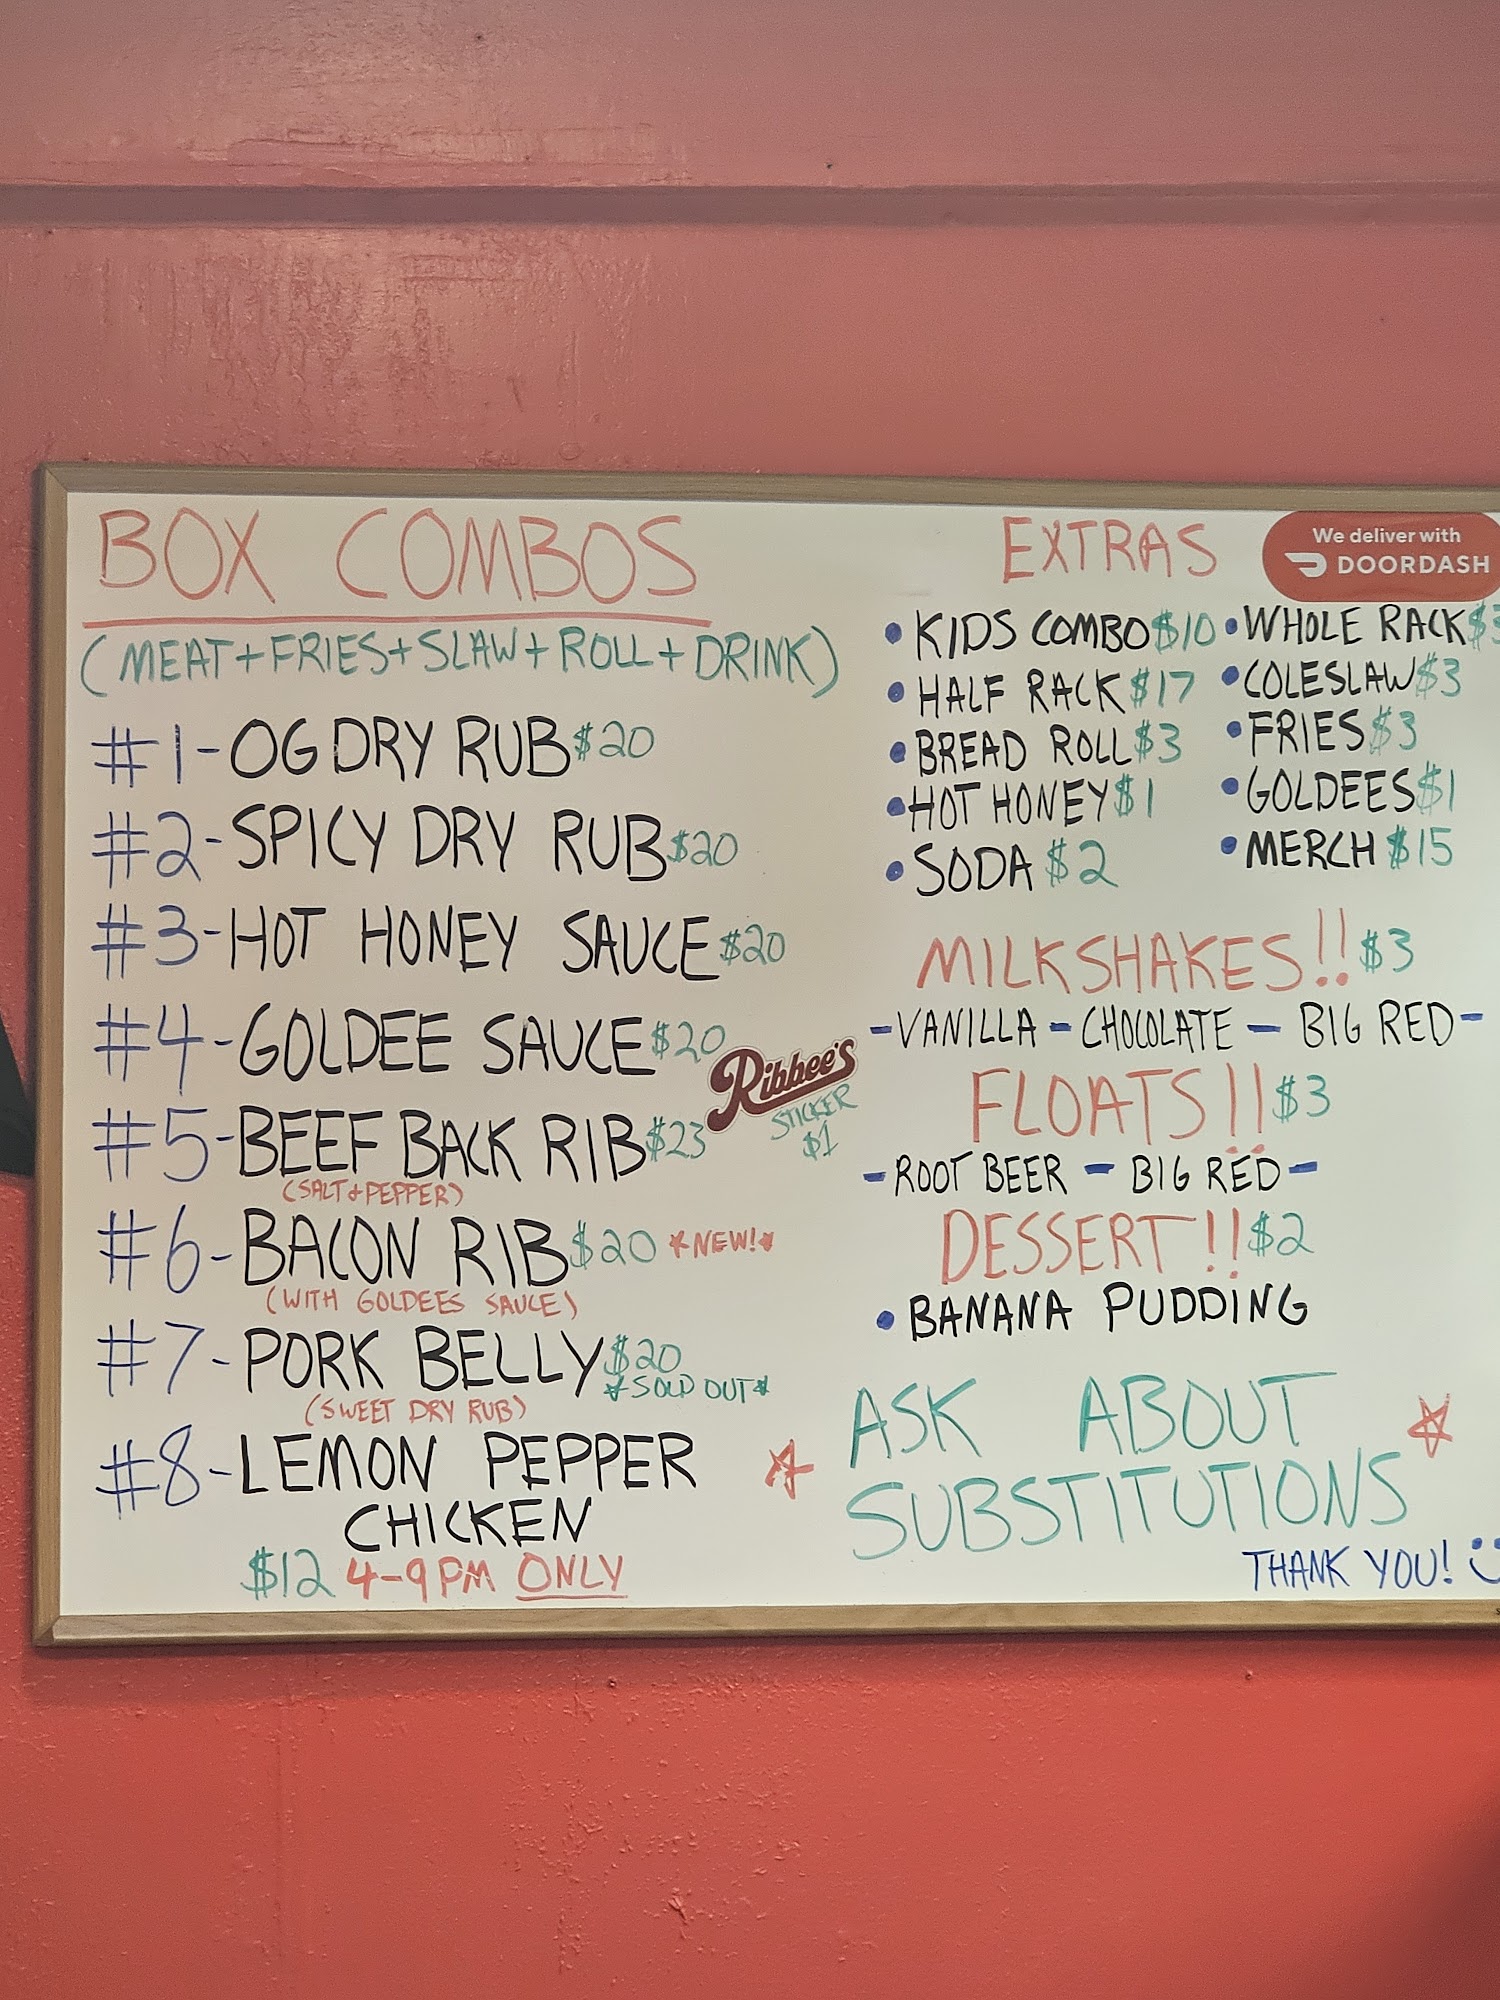 BOX COMBOS
(MEAT+FRIES+SLAW+ROLL+DRINK)
#1-OG DRY RUB $20
#2-SPICY DRY RUB $20
#3-HOT HONEY SAUCE $20
#4-GOLDEE SAUCE $20
#5-BEEF BACK RIB $23
(SALT & PEPPER)
#6-BACON RIB $20 *NEW!*
(WITH GOLDEES SAUCE)
#7-PORK BELLY $20
*SOLD OUT*
(SWEET DRY RUB)
#8-LEMON PEPPER
CHICKEN
$12 4-9PM ONLY
Ribbee's
STICKER
$1
EXTRAS
We deliver with
DOORDASH
• KIDS COMBO $10
• HALF RACK $17
• BREAD ROLL $3
• HOT HONEY $1
• SODA $2
• WHOLE RACK
• COLESLAW $3
• FRIES $3
• GOLDEES $1
• MERCH $15
MILKSHAKES!! $3
-VANILLA - CHOCOLATE - BIG RED-
FLOATS!! $3
-ROOT BEER - BIG RED-
DESSERT!! $2
• BANANA PUDDING
ASK ABOUT
SUBSTITUTIONS
THANK YOU!